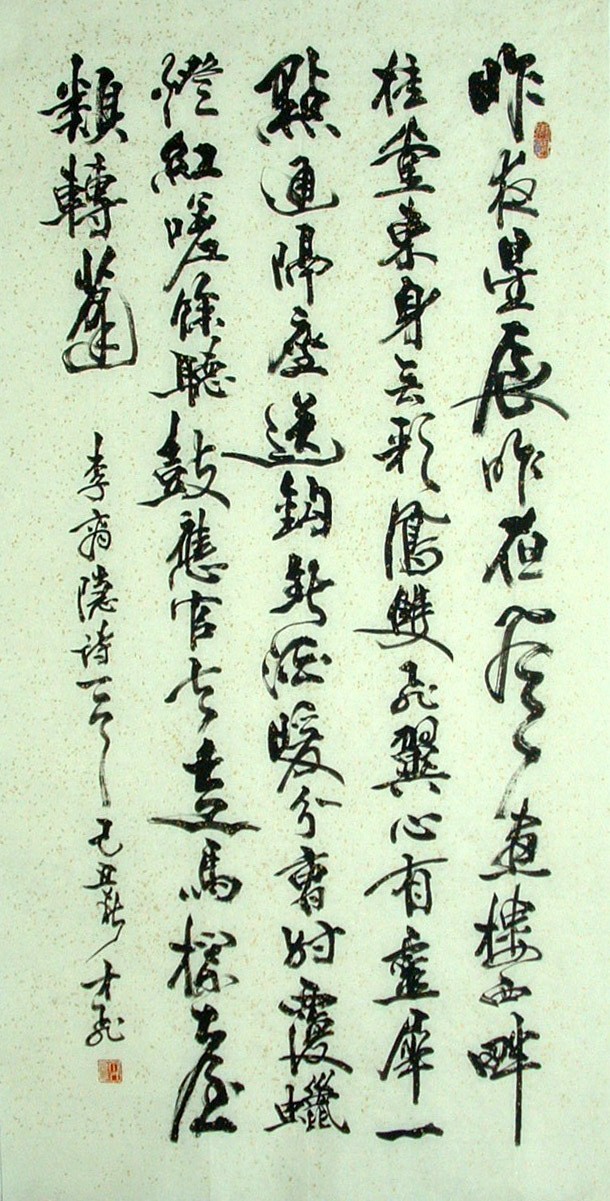 昨夜星辰昨夜風畫樓西畔
桂堂東身無彩鳳雙飛翼心有靈犀一
點通隔座送鈎春酒暖分曹射覆蠟
燈紅嗟餘聽鼓應官去走馬蘭臺
類轉蓬
李商隱詩一首 己丑秋 才飛